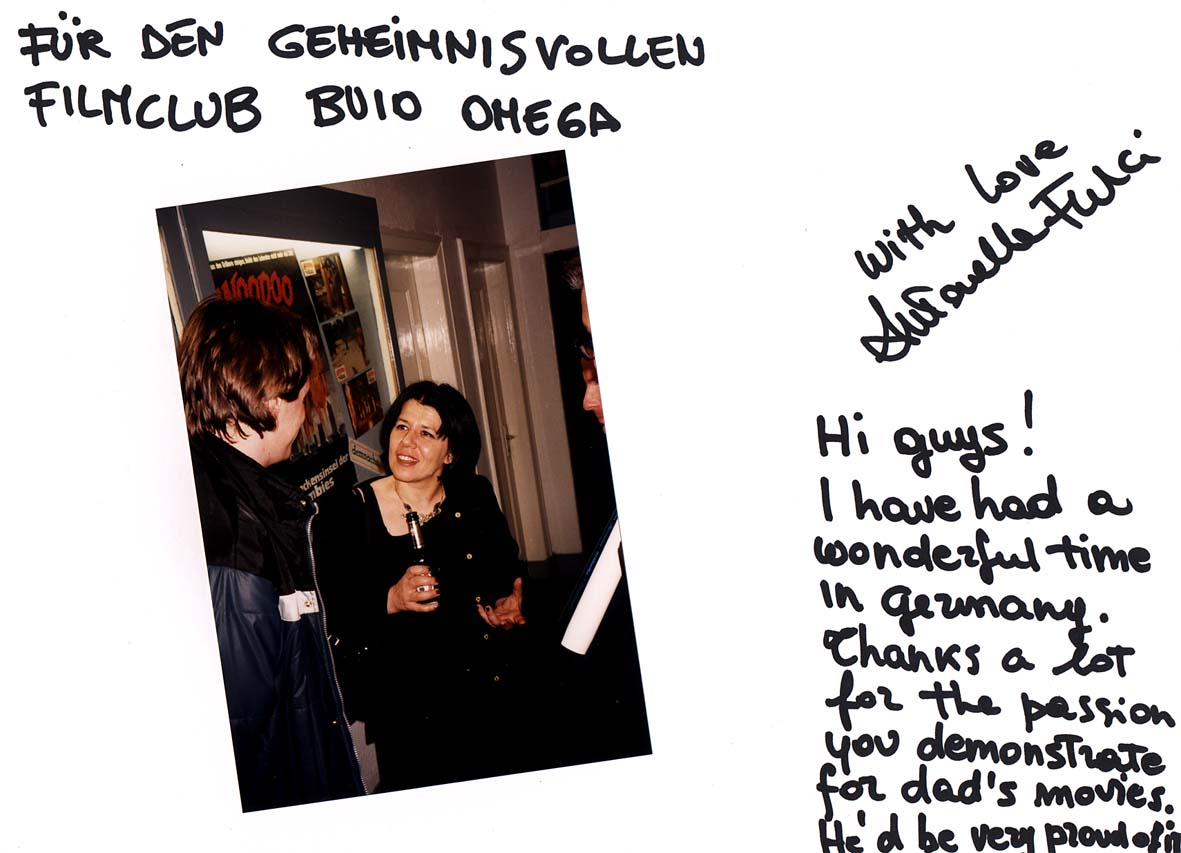 FÜR DEN GEHEIMNISVOLLEN
FILMCLUB BUIO OMEGA
With love
Antonella Fulci
Hi guys!
I have had a
wonderful time
in Germany.
Thanks a lot
for the passion
you demonstrate
for dad's movies.
He'd be very proud of
WOODOO
ckensinsel der
mbies
demnächst